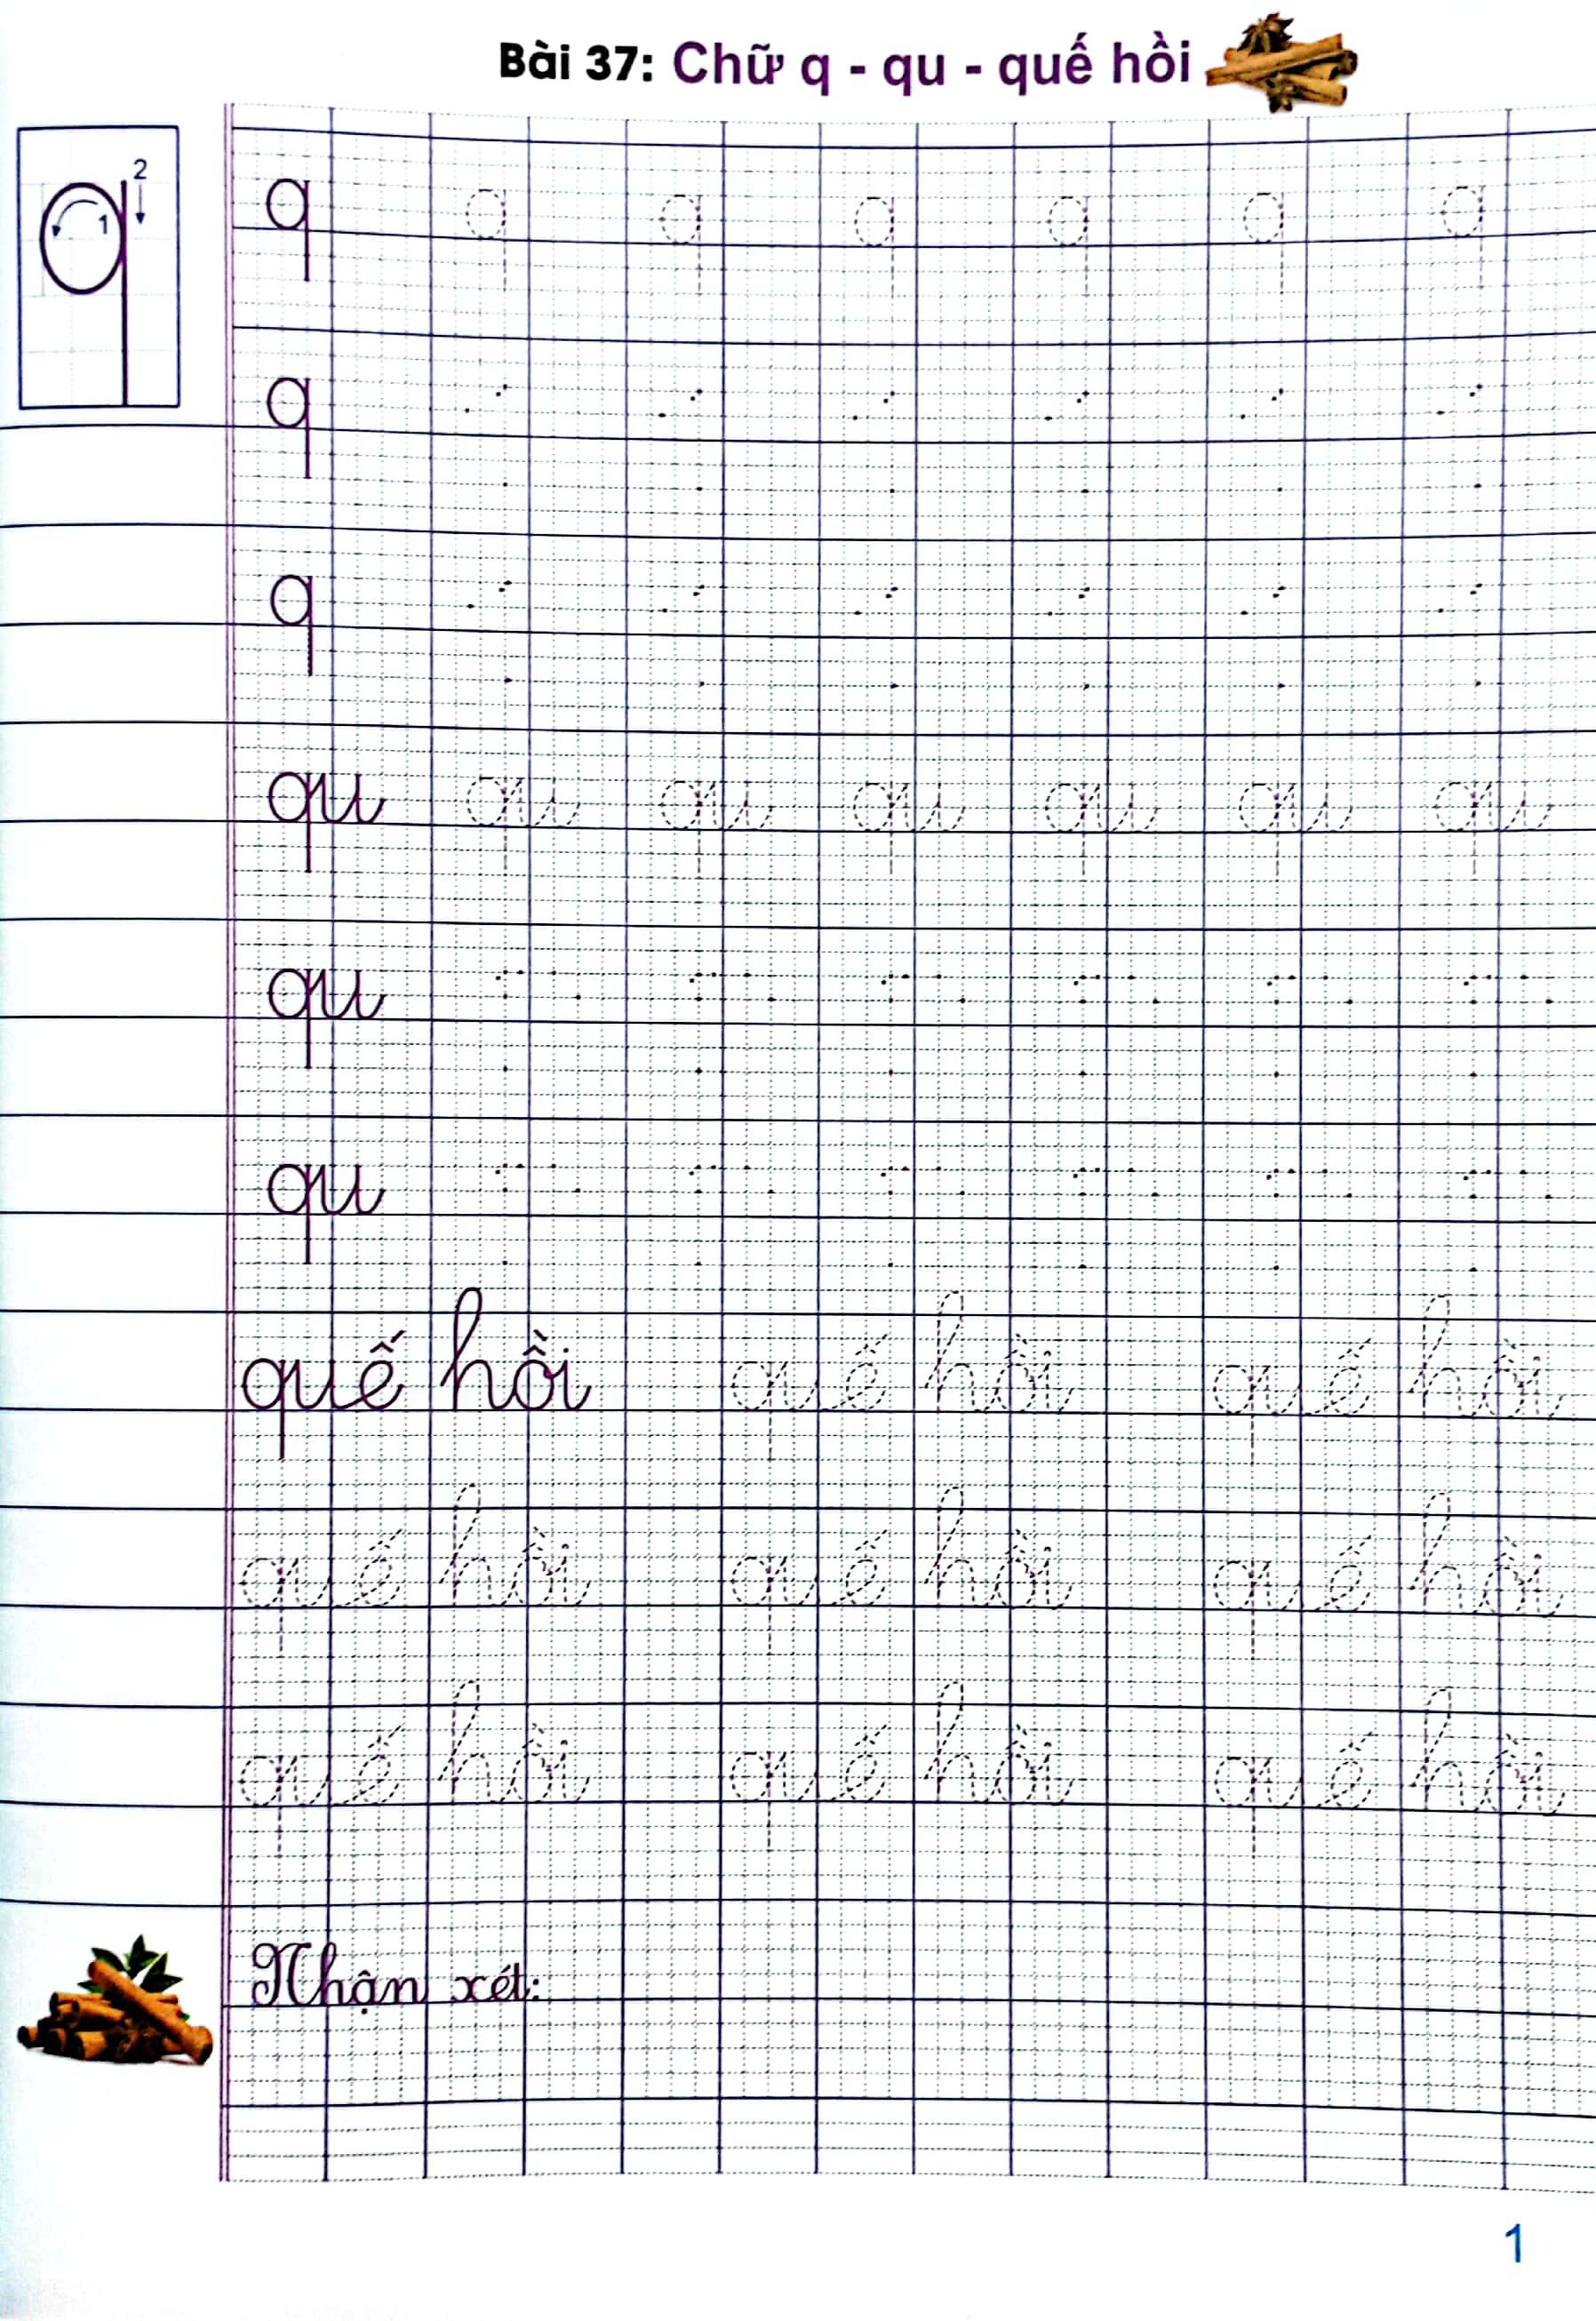 Bài 37: Chữ q - qu - quế hồi
2
1
q q q q q q q
q
q
qu qu qu qu qu qu qu
qu
qu
quế hồi quế hồi quế hồi
quế hồi quế hồi quế hồi
quế hồi quế hồi quế hồi
Nhận xét:
1